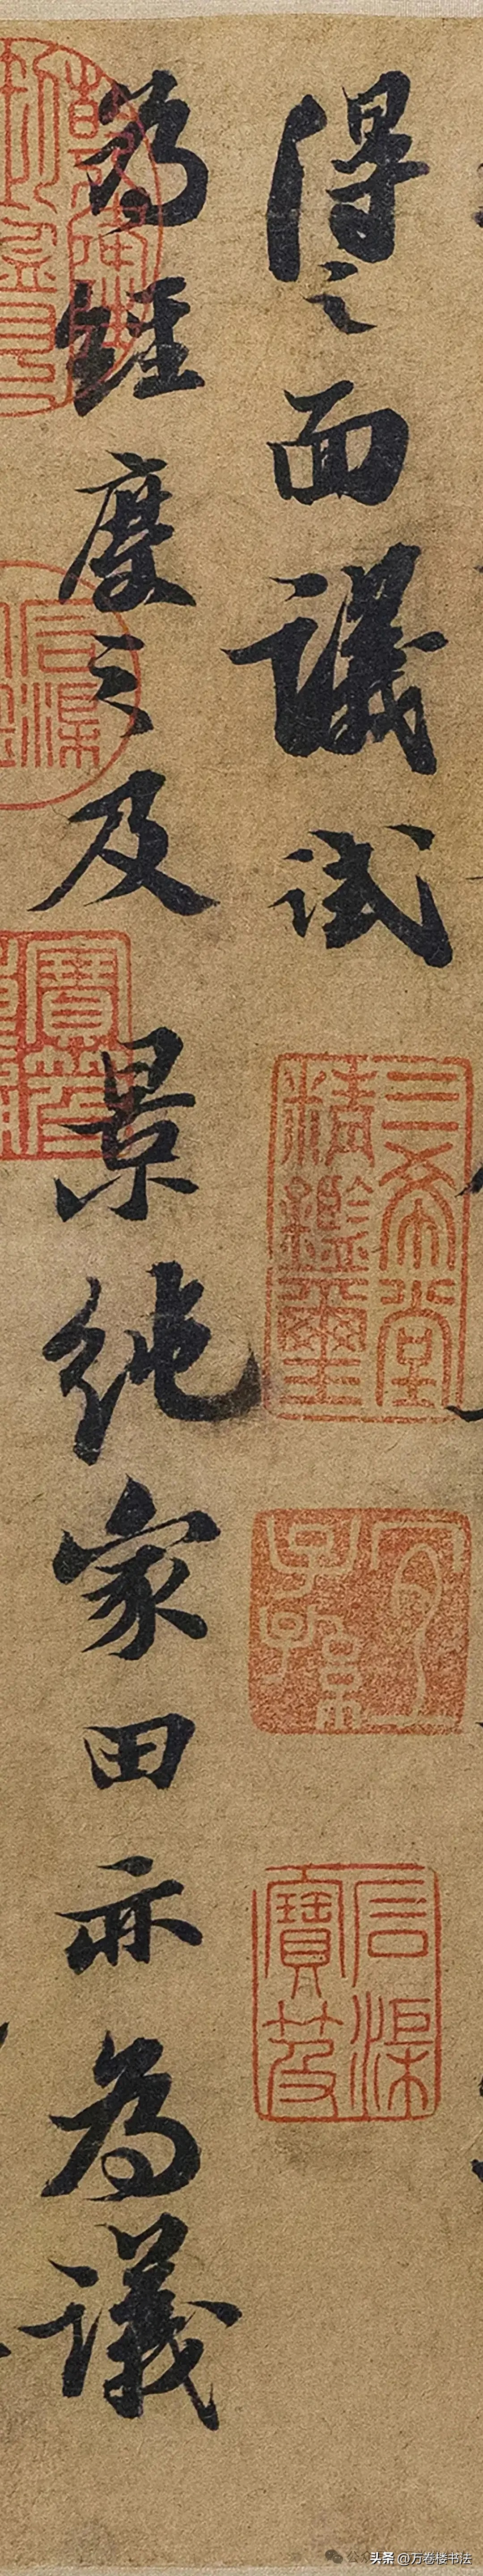 得之面議試
為經度之及 景純家田亦為議
三希堂精鑑璽
宜子孫
石渠寶笈
头条 @万卷楼书法